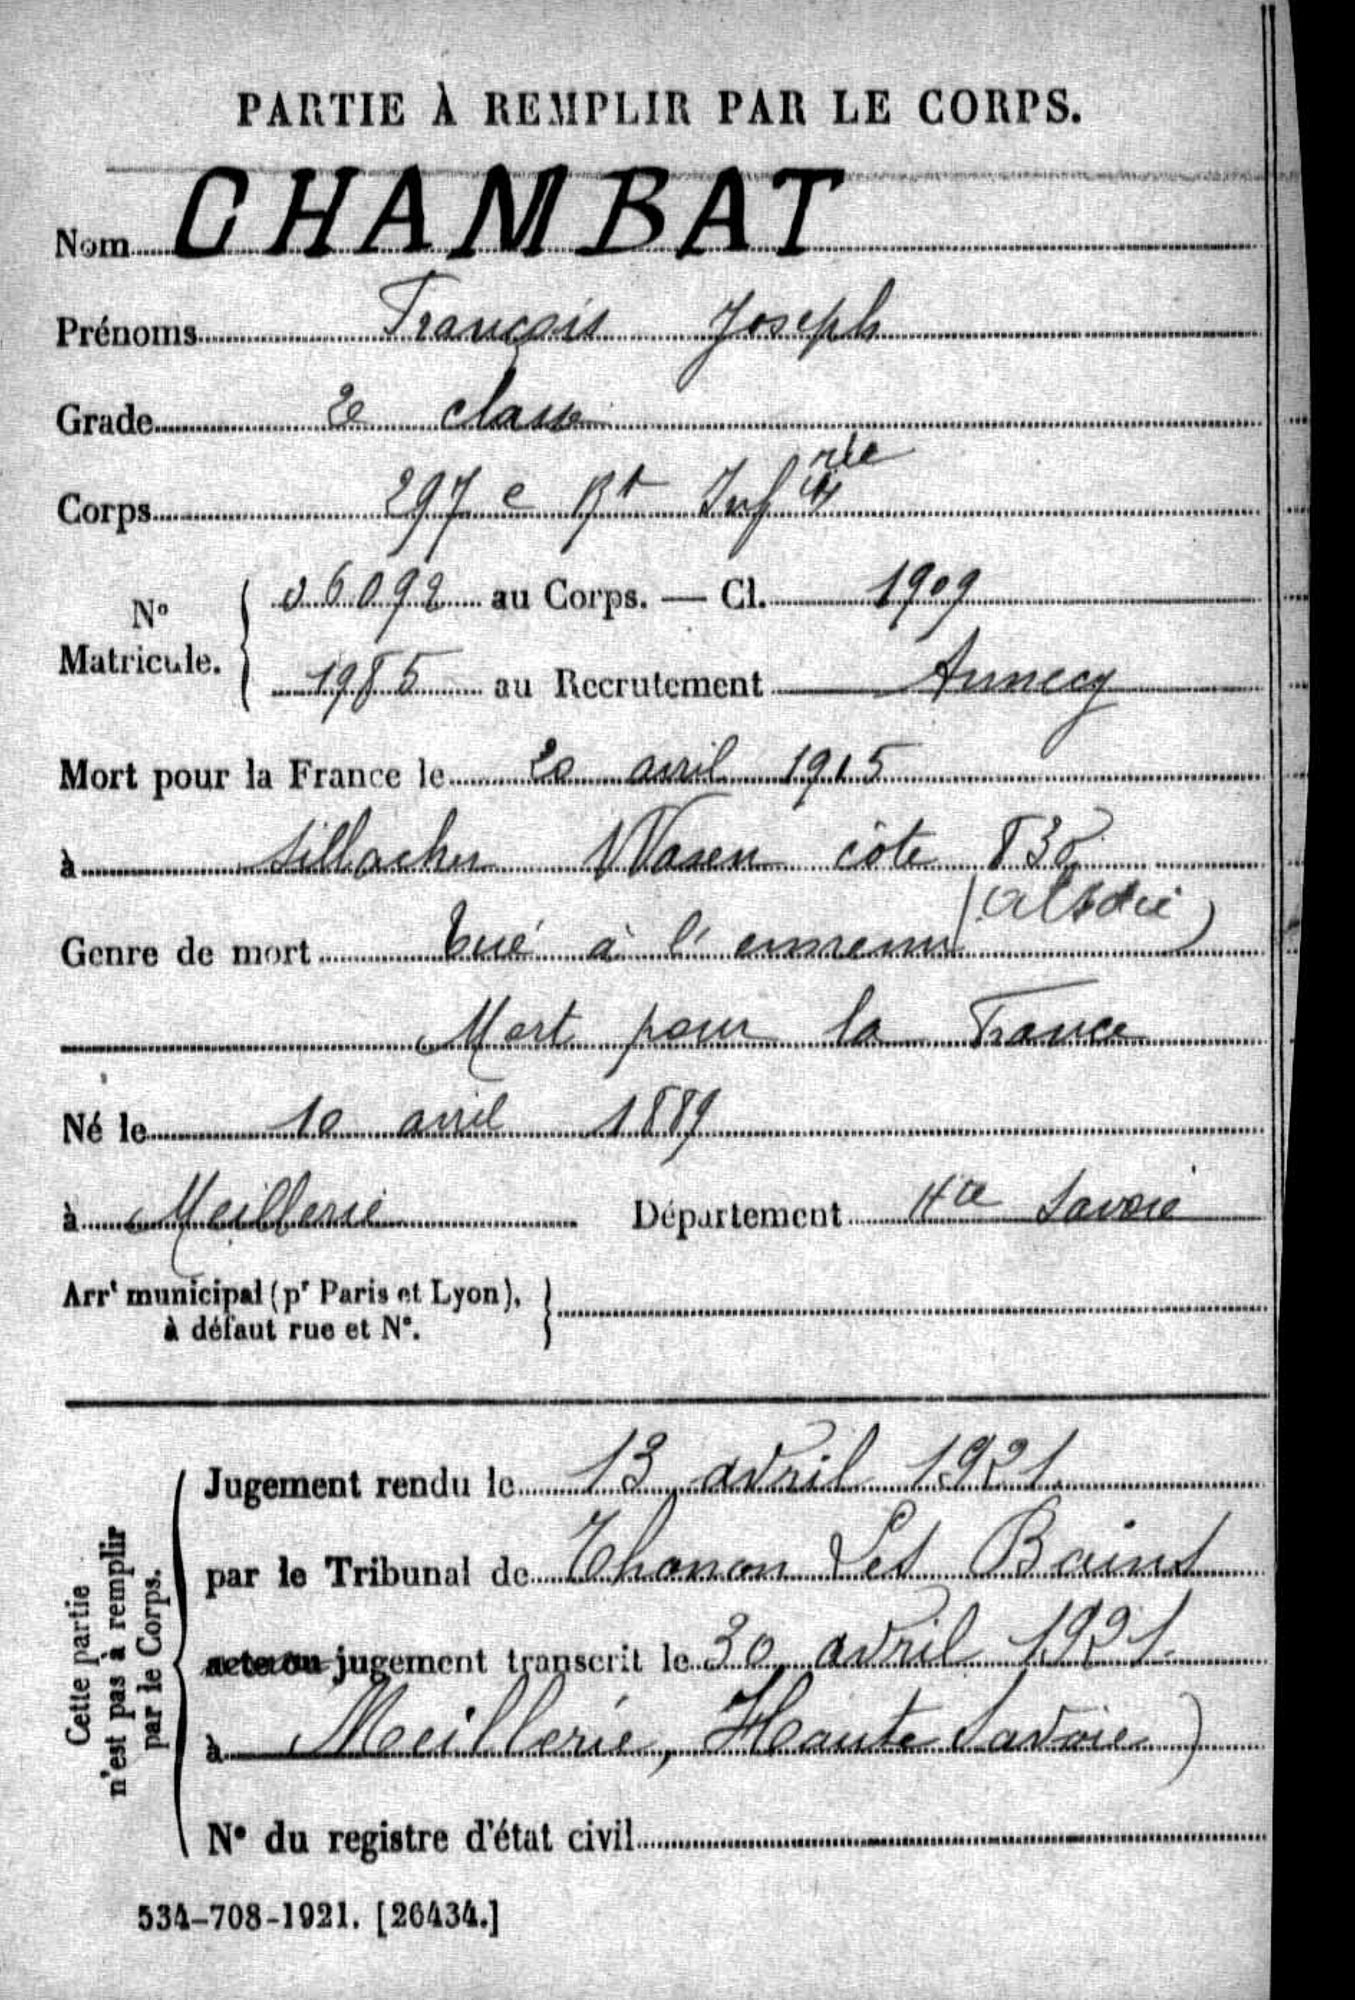 PARTIE À REMPLIR PAR LE CORPS.
Nom CHAMBAT
Prénoms François Joseph
Grade 2e classe
Corps 297e Rt Infrie
No Matricule. 06092 au Corps. — Cl. 1909
1985 au Recrutement Annecy
Mort pour la France le 20 avril 1915
à Sillacher Wasen côte 830
(Alsace)
Genre de mort tué à l'ennemi
Mort pour la France
Né le 10 avril 1889
à Meillerie Département Hte Savoie
Arrt municipal (pr Paris et Lyon),
à défaut rue et No.
Cette partie
n'est pas à remplir
par le Corps.
Jugement rendu le 13 avril 1921
par le Tribunal de Thonon Les Bains
acte ou jugement transcrit le 30 avril 1921.
à Meillerie, Haute Savoie)
No du registre d'état civil
534-708-1921. [26434.]